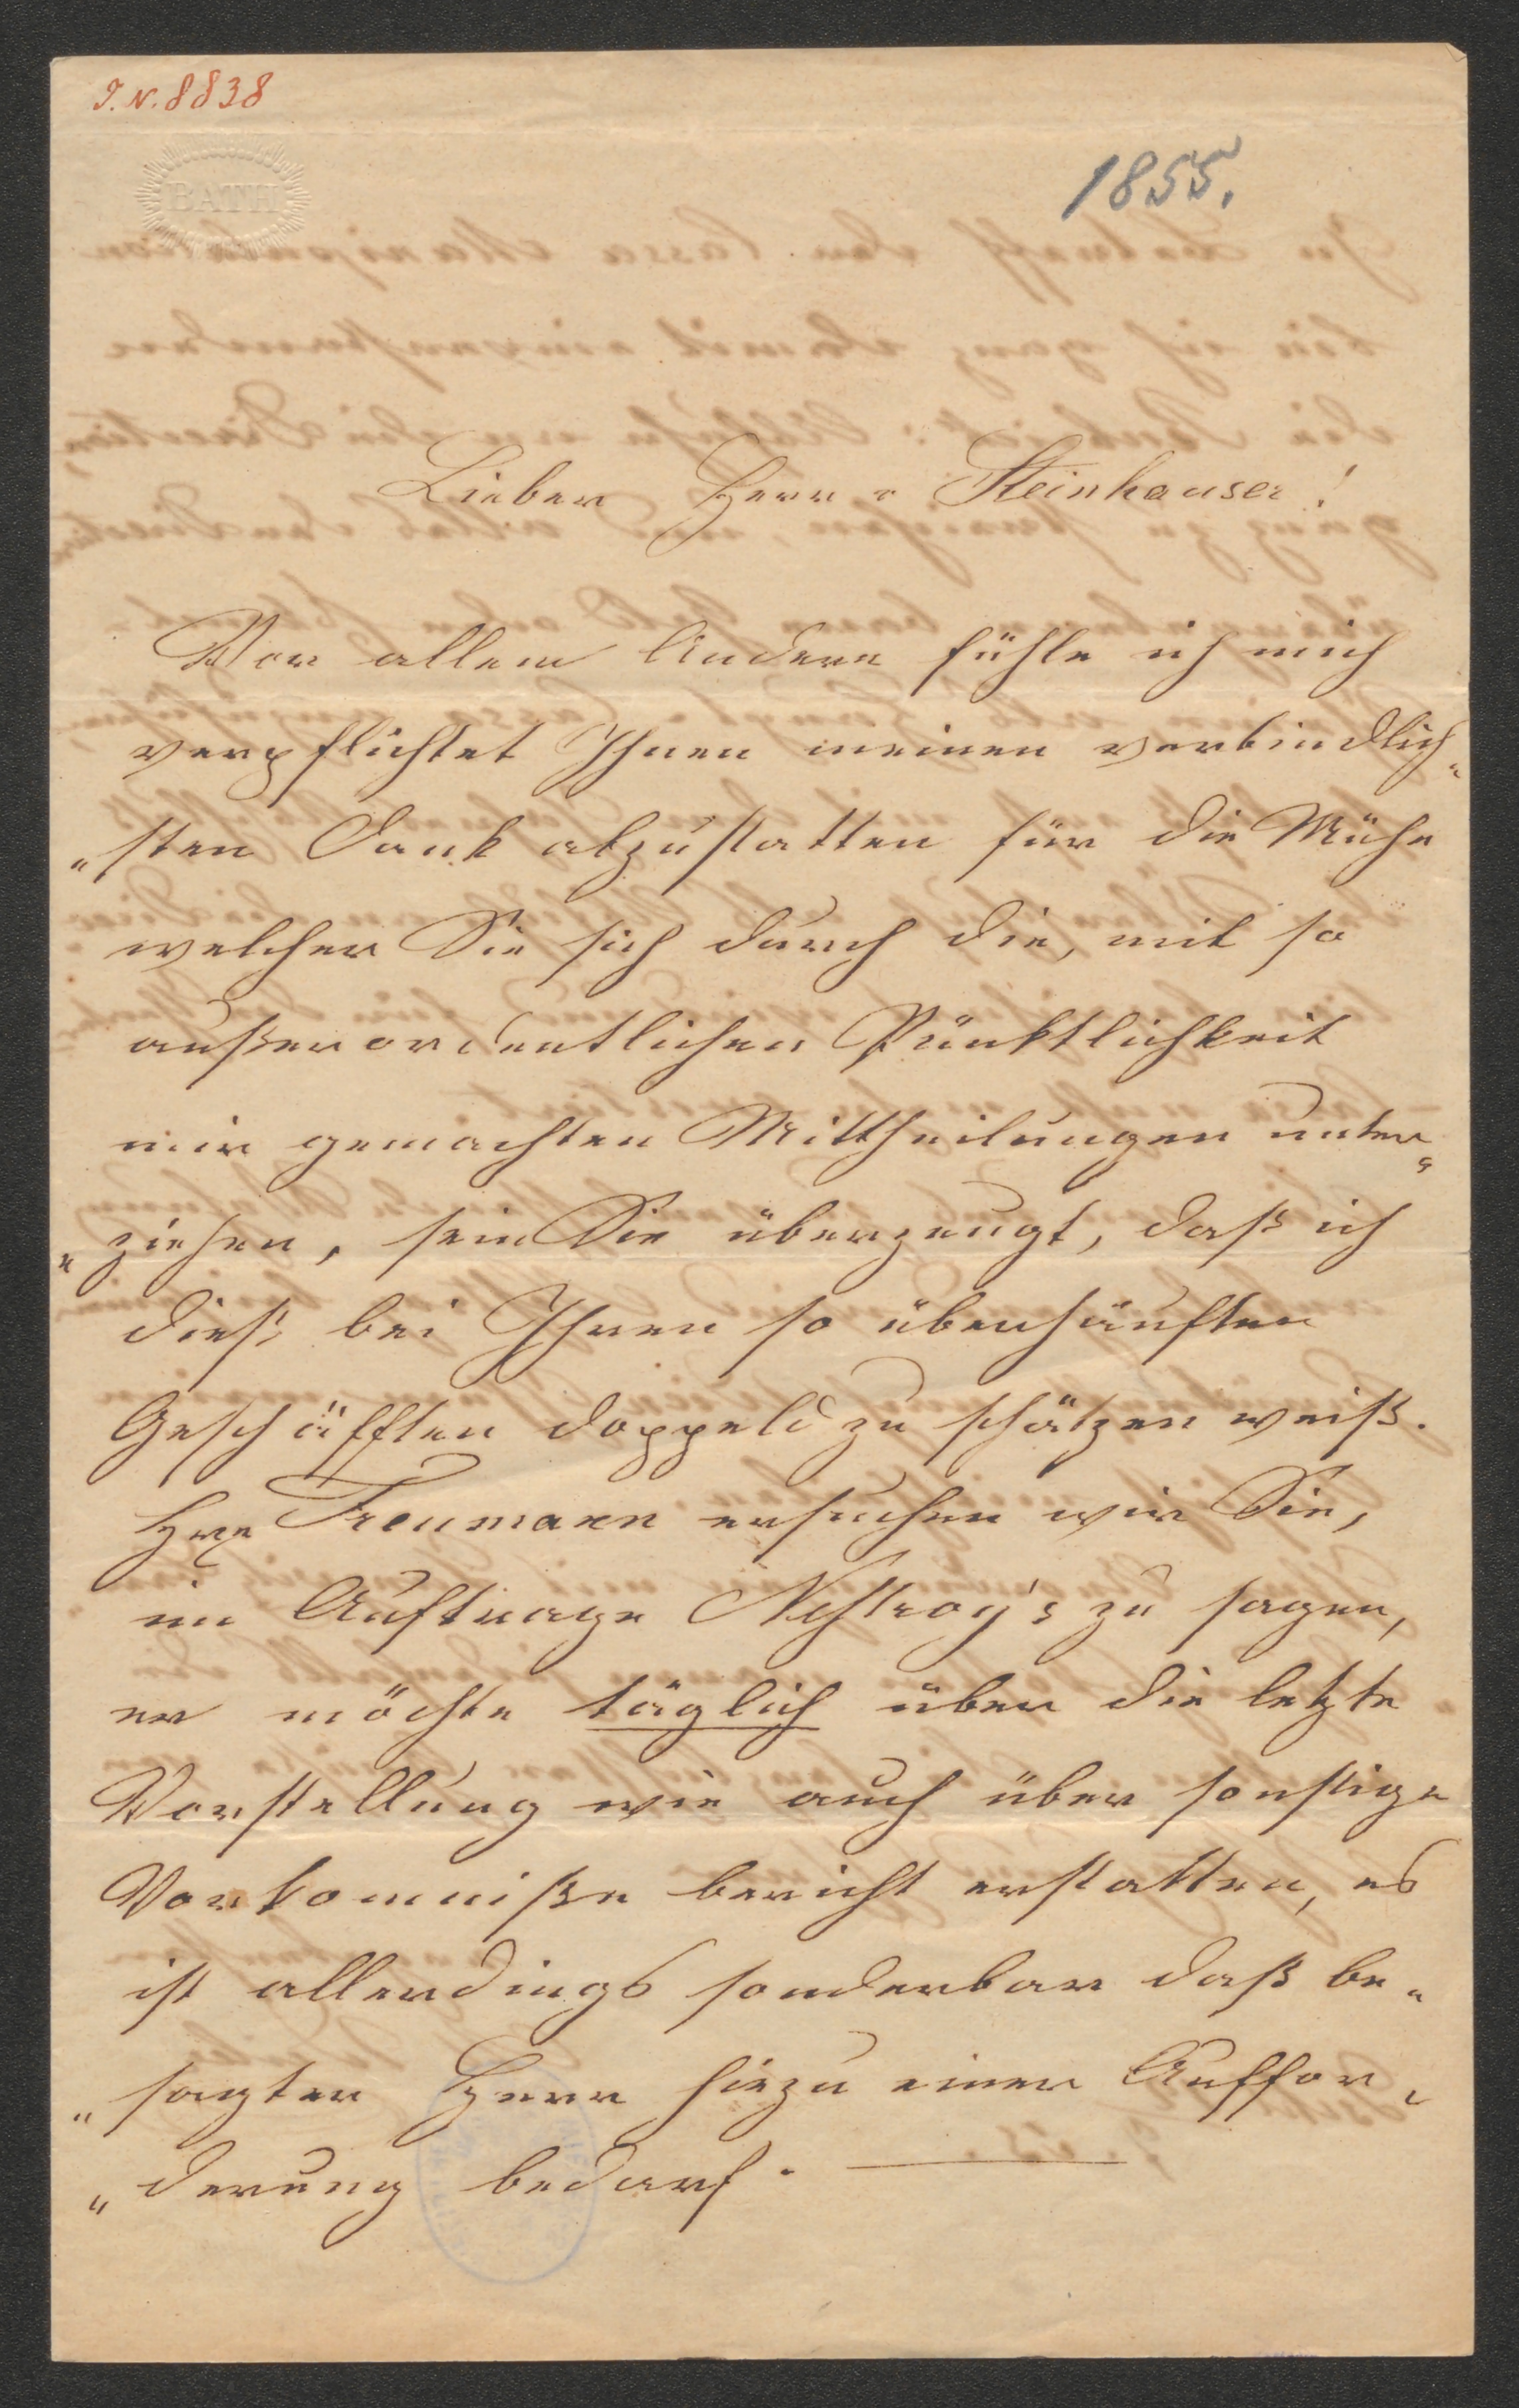 I. N. 8838
BATH
1855.
Lieber Herr v Steinhauser!
Vor allem Andern fühle ich mich
verpflichtet Ihnen meinen verbindlich„
„sten Dank abzustatten für die Mühe
welcher Sie sich durch die, mit so
außerordentlicher Pünktlichkeit
mir gemachten Mittheilungen unter„
„ziehen, sein Sie überzeugt, daß ich
dieß bei Ihren so überhäuften
Geschäfften doppeld zu schätzen weiß.
Hrn Treumann ersuchen wir Sie,
im Auftrage Nestroy's zu sagen,
er möchte täglich über die letzte
Vorstellung wie auch über sonstige
Vorkommniße bericht erstatten, es
ist allerdings sonderbar daß be„
„sagter Herr hiezu einer Auffor„
„derung bedarf. —